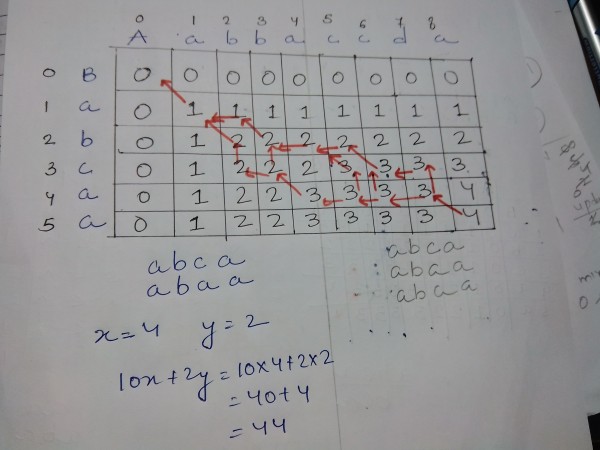 0 1 2 3 4 5 6 7 8
A a b b a c c d a
0 B 0 0 0 0 0 0 0 0 0
1 a 0 1 1 1 1 1 1 1 1
2 b 0 1 2 2 2 2 2 2 2
3 c 0 1 2 2 2 3 3 3 3
4 a 0 1 2 2 3 3 3 3 4
5 a 0 1 2 2 3 3 3 3 4
abca
abaa
abca
abaa
abaa
x=4 y=2
10x+2y=10x4+2x2
=40+4
=44